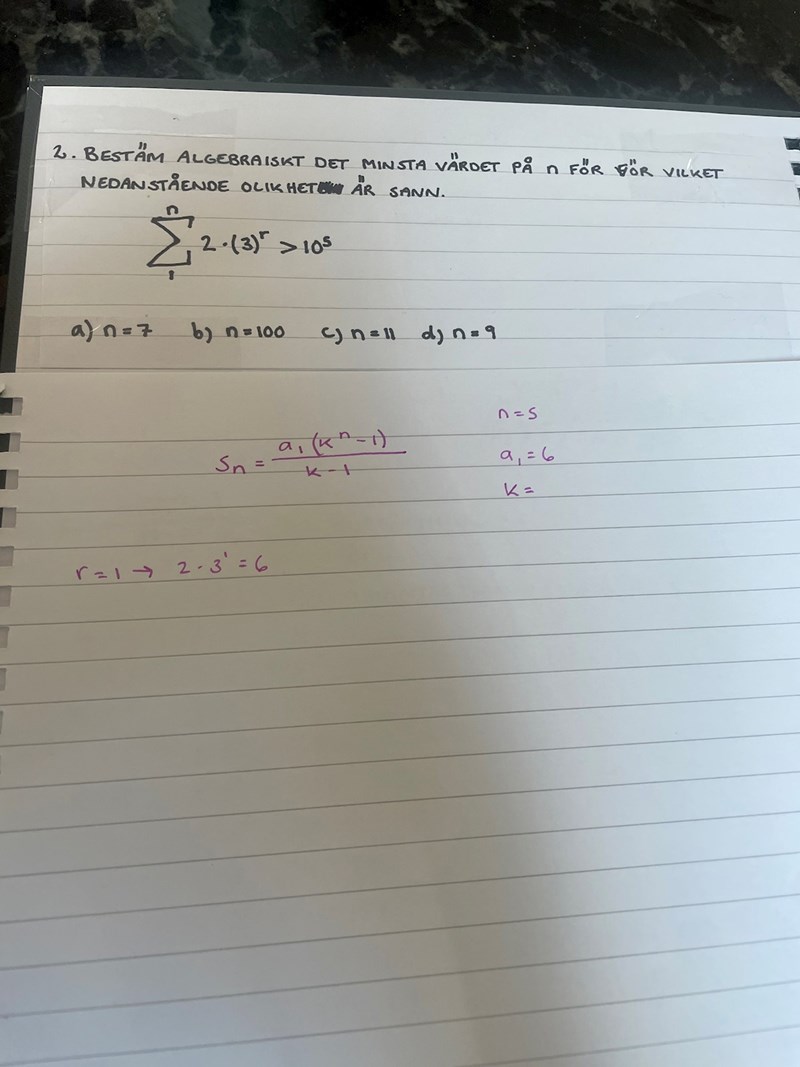 2. BESTÄM ALGEBRAISKT DET MINSTA VÄRDET PÅ n FÖR FÖR VILKET
NEDANSTÅENDE OLIKHET ÄR SANN.
n
∑ 2·(3)^r > 10^5
1
a) n=7 b) n=100 c) n=11 d) n=9
n=5
S_n = a_1(k^n-1)/k-1
a_1=6
k=
r=1 → 2·3^1=6